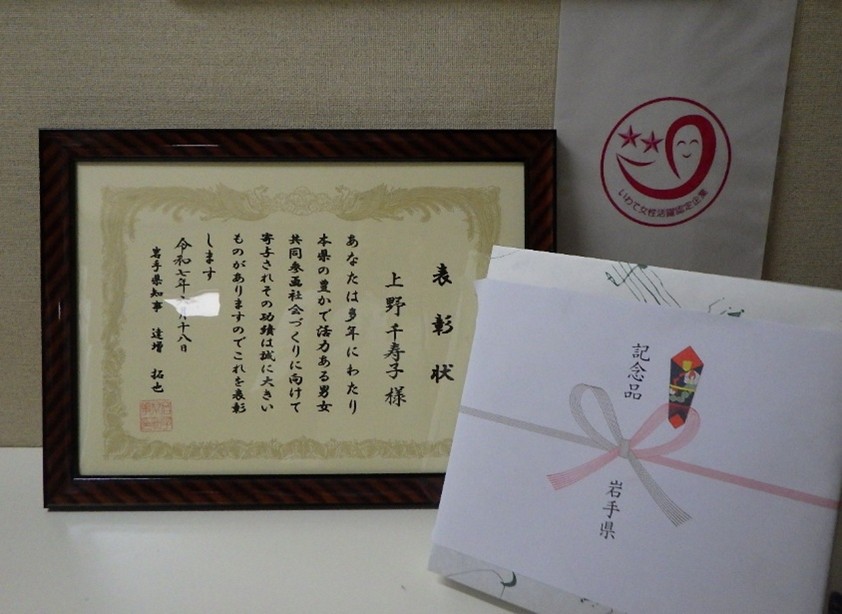 表彰状
上野千寿子様
あなたは多年にわたり
本県の豊かで活力ある男女
共同参画社会づくりに向けて
寄与されその功績は誠に大きい
ものがありますのでこれを表彰
します
令和七年 月十八日
岩手県知事 達増 拓也
いわて女性活躍認定企業
記念品
岩手県